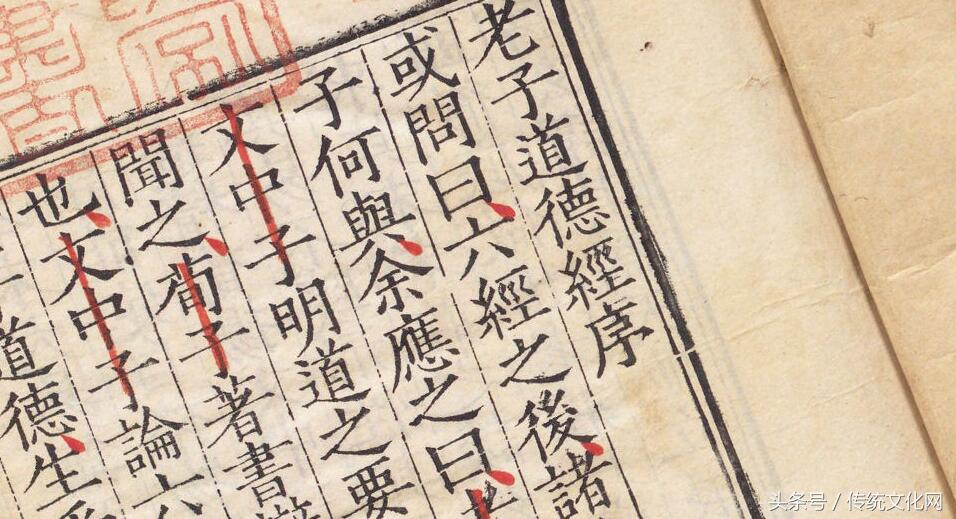 老子道德經序
或問曰六經之後諸
子何與余應之曰
文中子明道之要
聞之荀子著書
也文中子論六
道德生
头条号 / 传统文化网